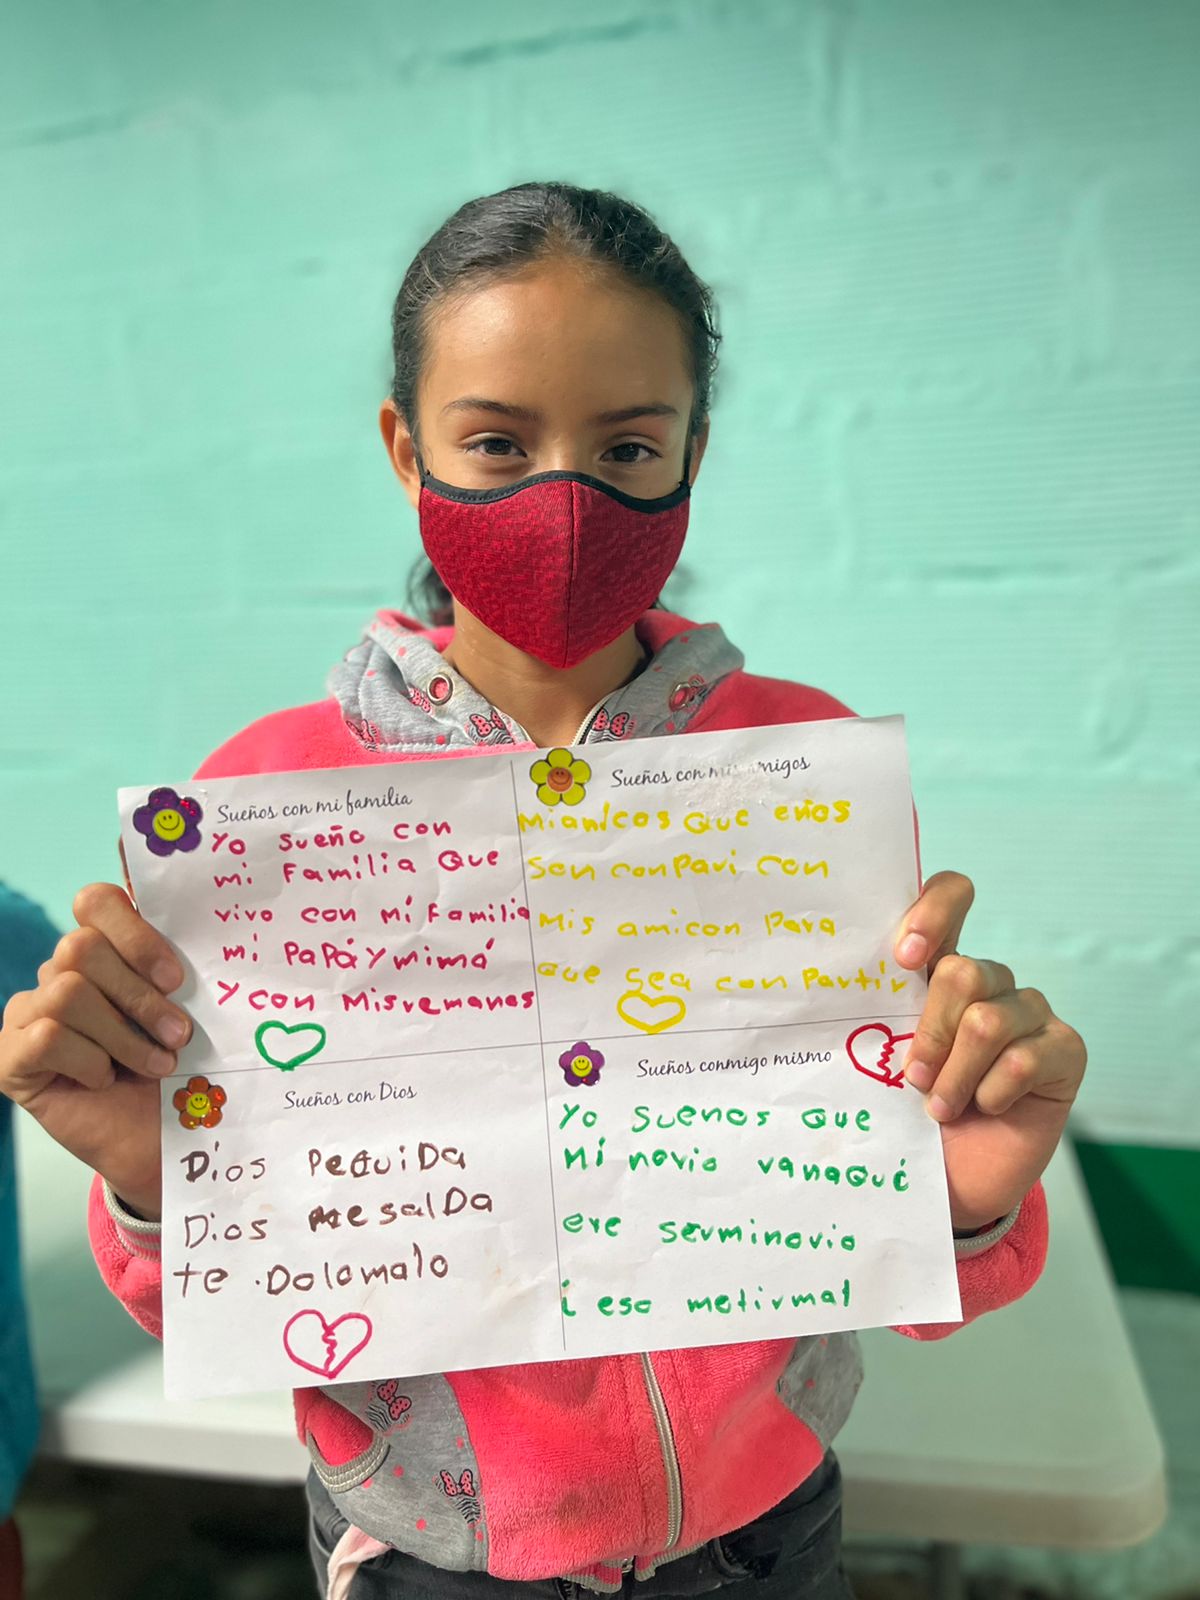 Sueños con mi familia
Yo sueño con
mi Familia Que
vivo con mí Familia
mí PaPáYmimá
Y con Misremanos
Sueños con mis amigos
Miamicos Que enos
Son conPavi con
Mis amicon Para
Que sea con Partír
Sueños con Dios
Díos PeQuiDa
Dios me salDa
te .Dolomalo
Sueños conmigo mismo
Yo Suenos Que
Mí novio vanaQué
ere serminovio
i eso metirmal